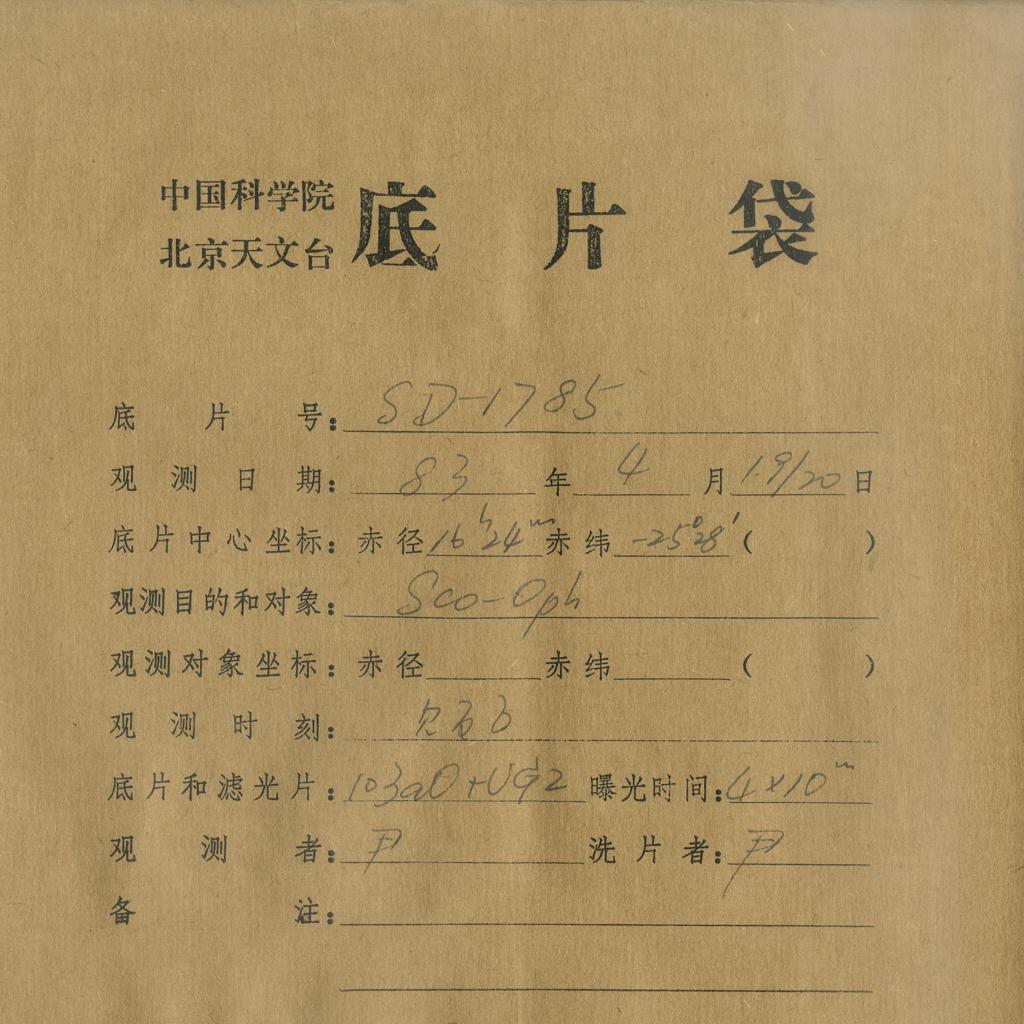 中国科学院
北京天文台 底片袋
底片号: SD-1785
观测日期: 83年4月19/20日
底片中心坐标: 赤径16h24m赤纬-25°28′( )
观测目的和对象: Sco-Oph
观测对象坐标: 赤径 赤纬 ( )
观测时刻:
底片和滤光片: 103aO+UG2 曝光时间: 4×10m
观测者: 尹 洗片者: 尹
备注: